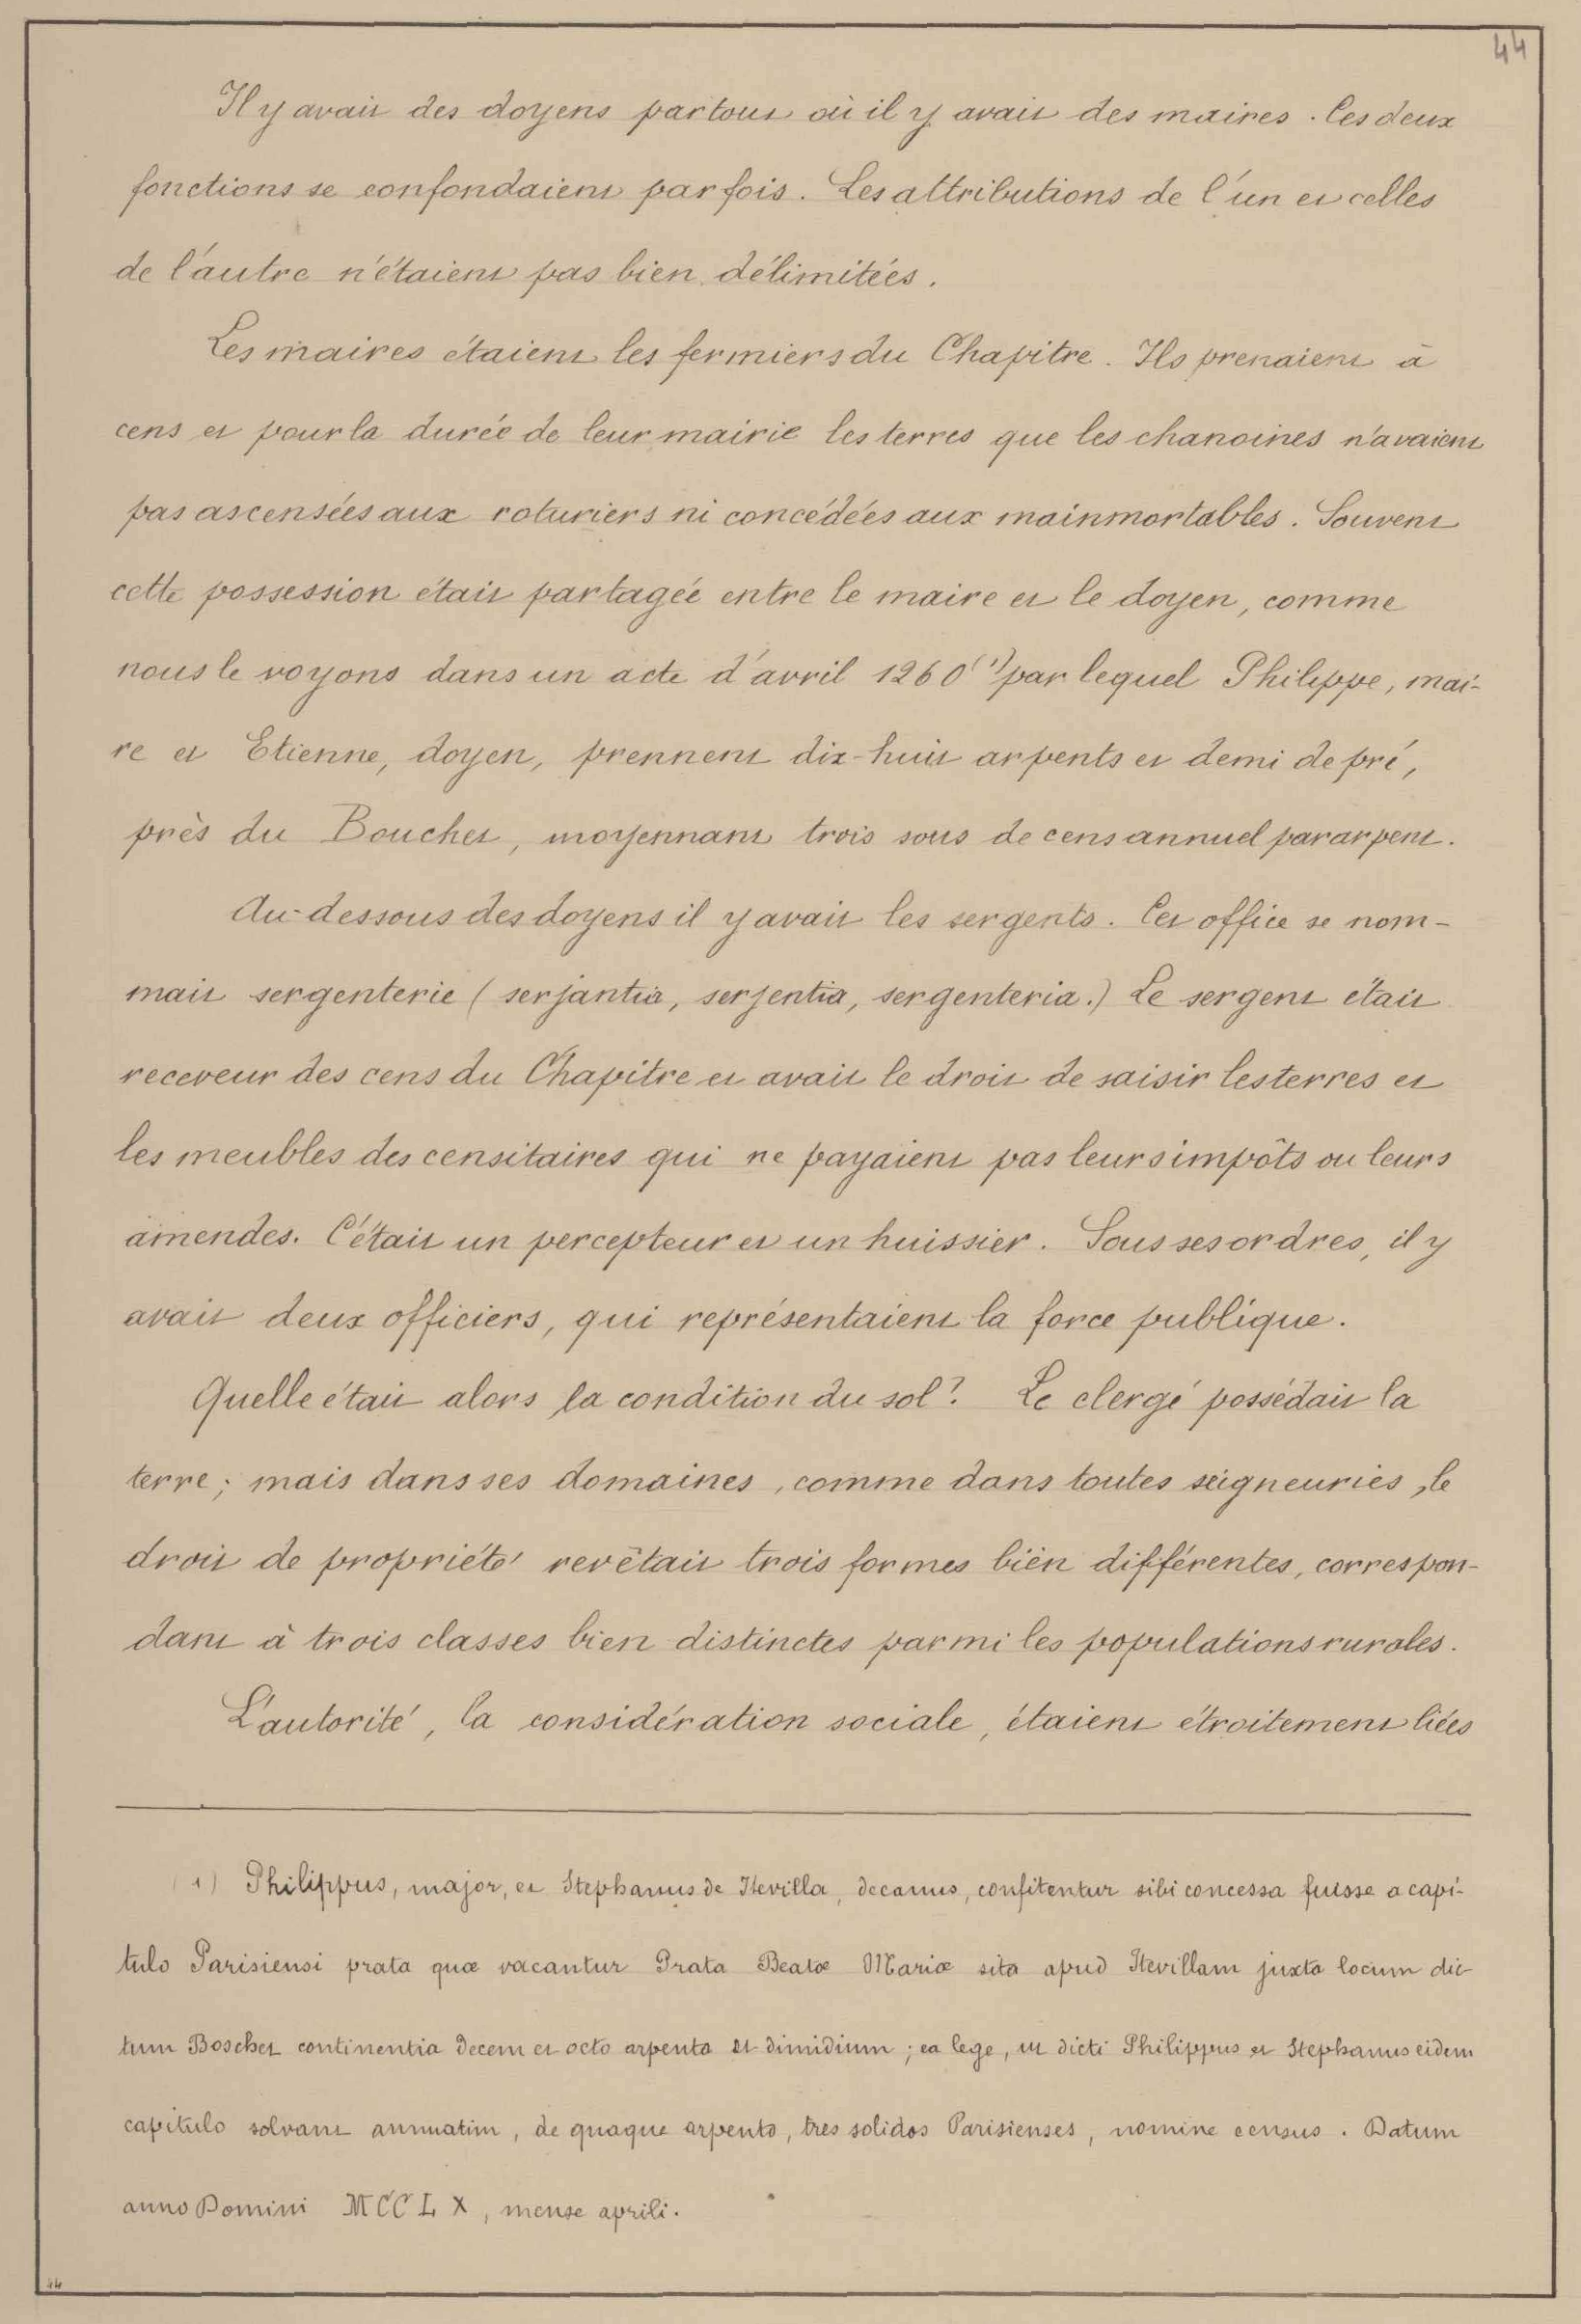 44
Il y avait des doyens partout où il y avait des maires. Ces deux
fonctions se confondaient parfois. Les attributions de l'un et celles
de l'autre n'étaient pas bien délimitées.
Les maires étaient les fermiers du Chapitre. Ils prenaient à
cens et pour la durée de leur mairie les terres que les chanoines n'avaient
pas ascensées aux roturiers ni concédées aux mainmortables. Souvent
cette possession était partagée entre le maire et le doyen, comme
nous le voyons dans un acte d'avril 1260 (1) par lequel Philippe, mai-
re et Etienne, doyen, prennent dix-huit arpents et demi de pré,
près du Bouchet, moyennant trois sous de cens annuel par arpent.
Au-dessous des doyens il y avait les sergents. Cet office se nom-
mait sergenterie (serjantia, serjentia, sergenteria.) Le sergent était
receveur des cens du Chapitre et avait le droit de saisir les terres et
les meubles des censitaires qui ne payaient pas leurs impôts ou leurs
amendes. C'était un percepteur et un huissier. Sous ses ordres, il y
avait deux officiers, qui représentaient la force publique.
Quelle était alors la condition du sol? Le clergé possédait la
terre; mais dans ses domaines, comme dans toutes seigneuries, le
droit de propriété revêtait trois formes bien différentes, correspon-
dant à trois classes bien distinctes parmi les populations rurales.
L'autorité, la considération sociale, étaient étroitement liées
(1) Philippus, major, et Stephanus de Itevilla, decanus, confitentur sibi concessa fuisse a capi-
tulo Parisiensi prata quæ vacantur Prata Beatæ Mariæ sita apud Itevillam juxta locum dic-
tum Boschet continentia decem et octo arpenta et dimidium; ea lege, ut dicti Philippus et Stephanus eidem
capitulo solvant annuatim, de quaque arpento, tres solidos Parisienses, nomine census. Datum
anno Domini MCCLX, mense aprili.
44